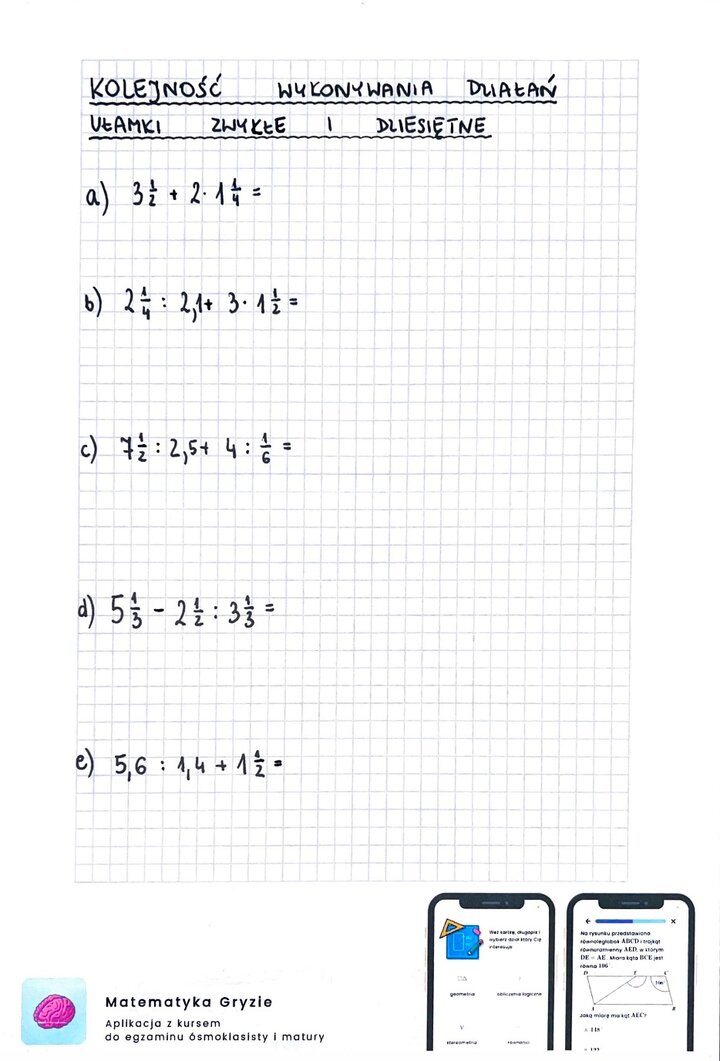 KOLEJNOŚĆ WYKONYWANIA DZIAŁAŃ
UŁAMKI ZWYKŁE I DZIESIĘTNE
a) 3 1/2 + 2 · 1 1/4 =
b) 2 1/4 : 2,1 + 3 · 1 1/2 =
c) 7 1/2 : 2,5 + 4 : 1/6 =
d) 5 1/3 - 2 1/2 : 3 1/3 =
e) 5,6 : 1,4 + 1 1/2 =
Weź kartkę, długopis i
wybierz dział który Cię
interesuje
geometria obliczenia logiczne
stereometria równania
Na rysunku przedstawiono
równoległobok ABCD i trójkąt
równoramienny AED, w którym
DE = AE. Miara kąta BCE jest
równa 106°.
D E C
106°
A B
Jaką miarę ma kąt AEC?
A 148
Matematyka Gryzie
Aplikacja z kursem
do egzaminu ósmoklasisty i matury